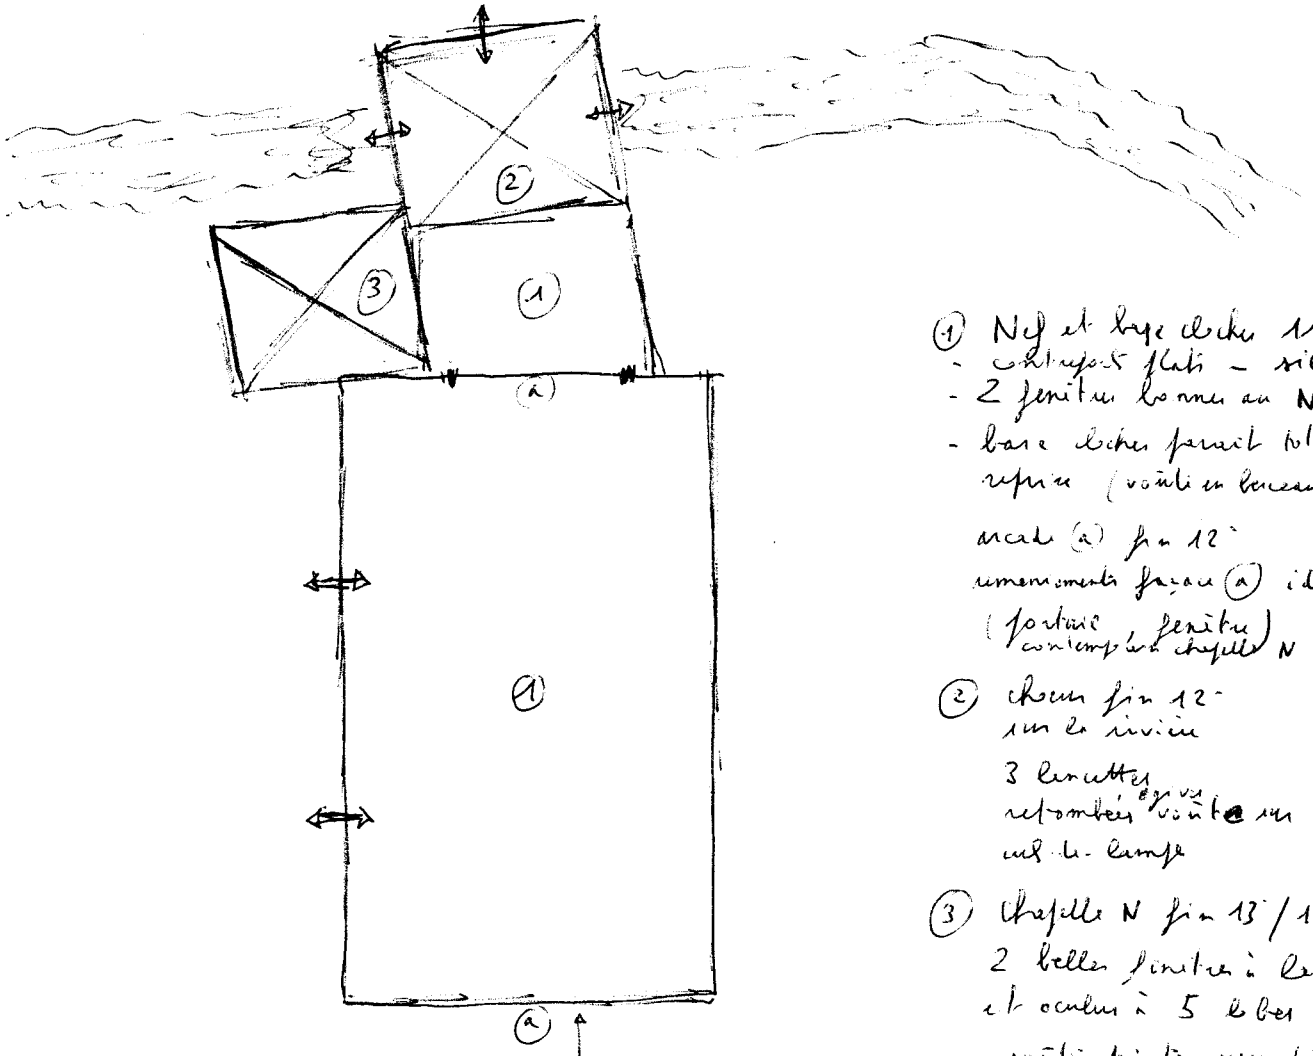 2
3
1
a
1
a
① Nef et base clocher 1
- contreforts plats -
- 2 fenêtres bonnes au N
- base clocher parait
reprise (voûte en berceau
arcade ⓐ fin 12e
remaniements façade ⓐ id
(portail, fenêtre)
chapelle N
② choeur fin 12e
sur la rivière
3 lancettes
retombées ogives voûte sur
cul-de-lampe
③ Chapelle N fin 13e/1
2 belles fenêtres à
et oculus à 5 lobes